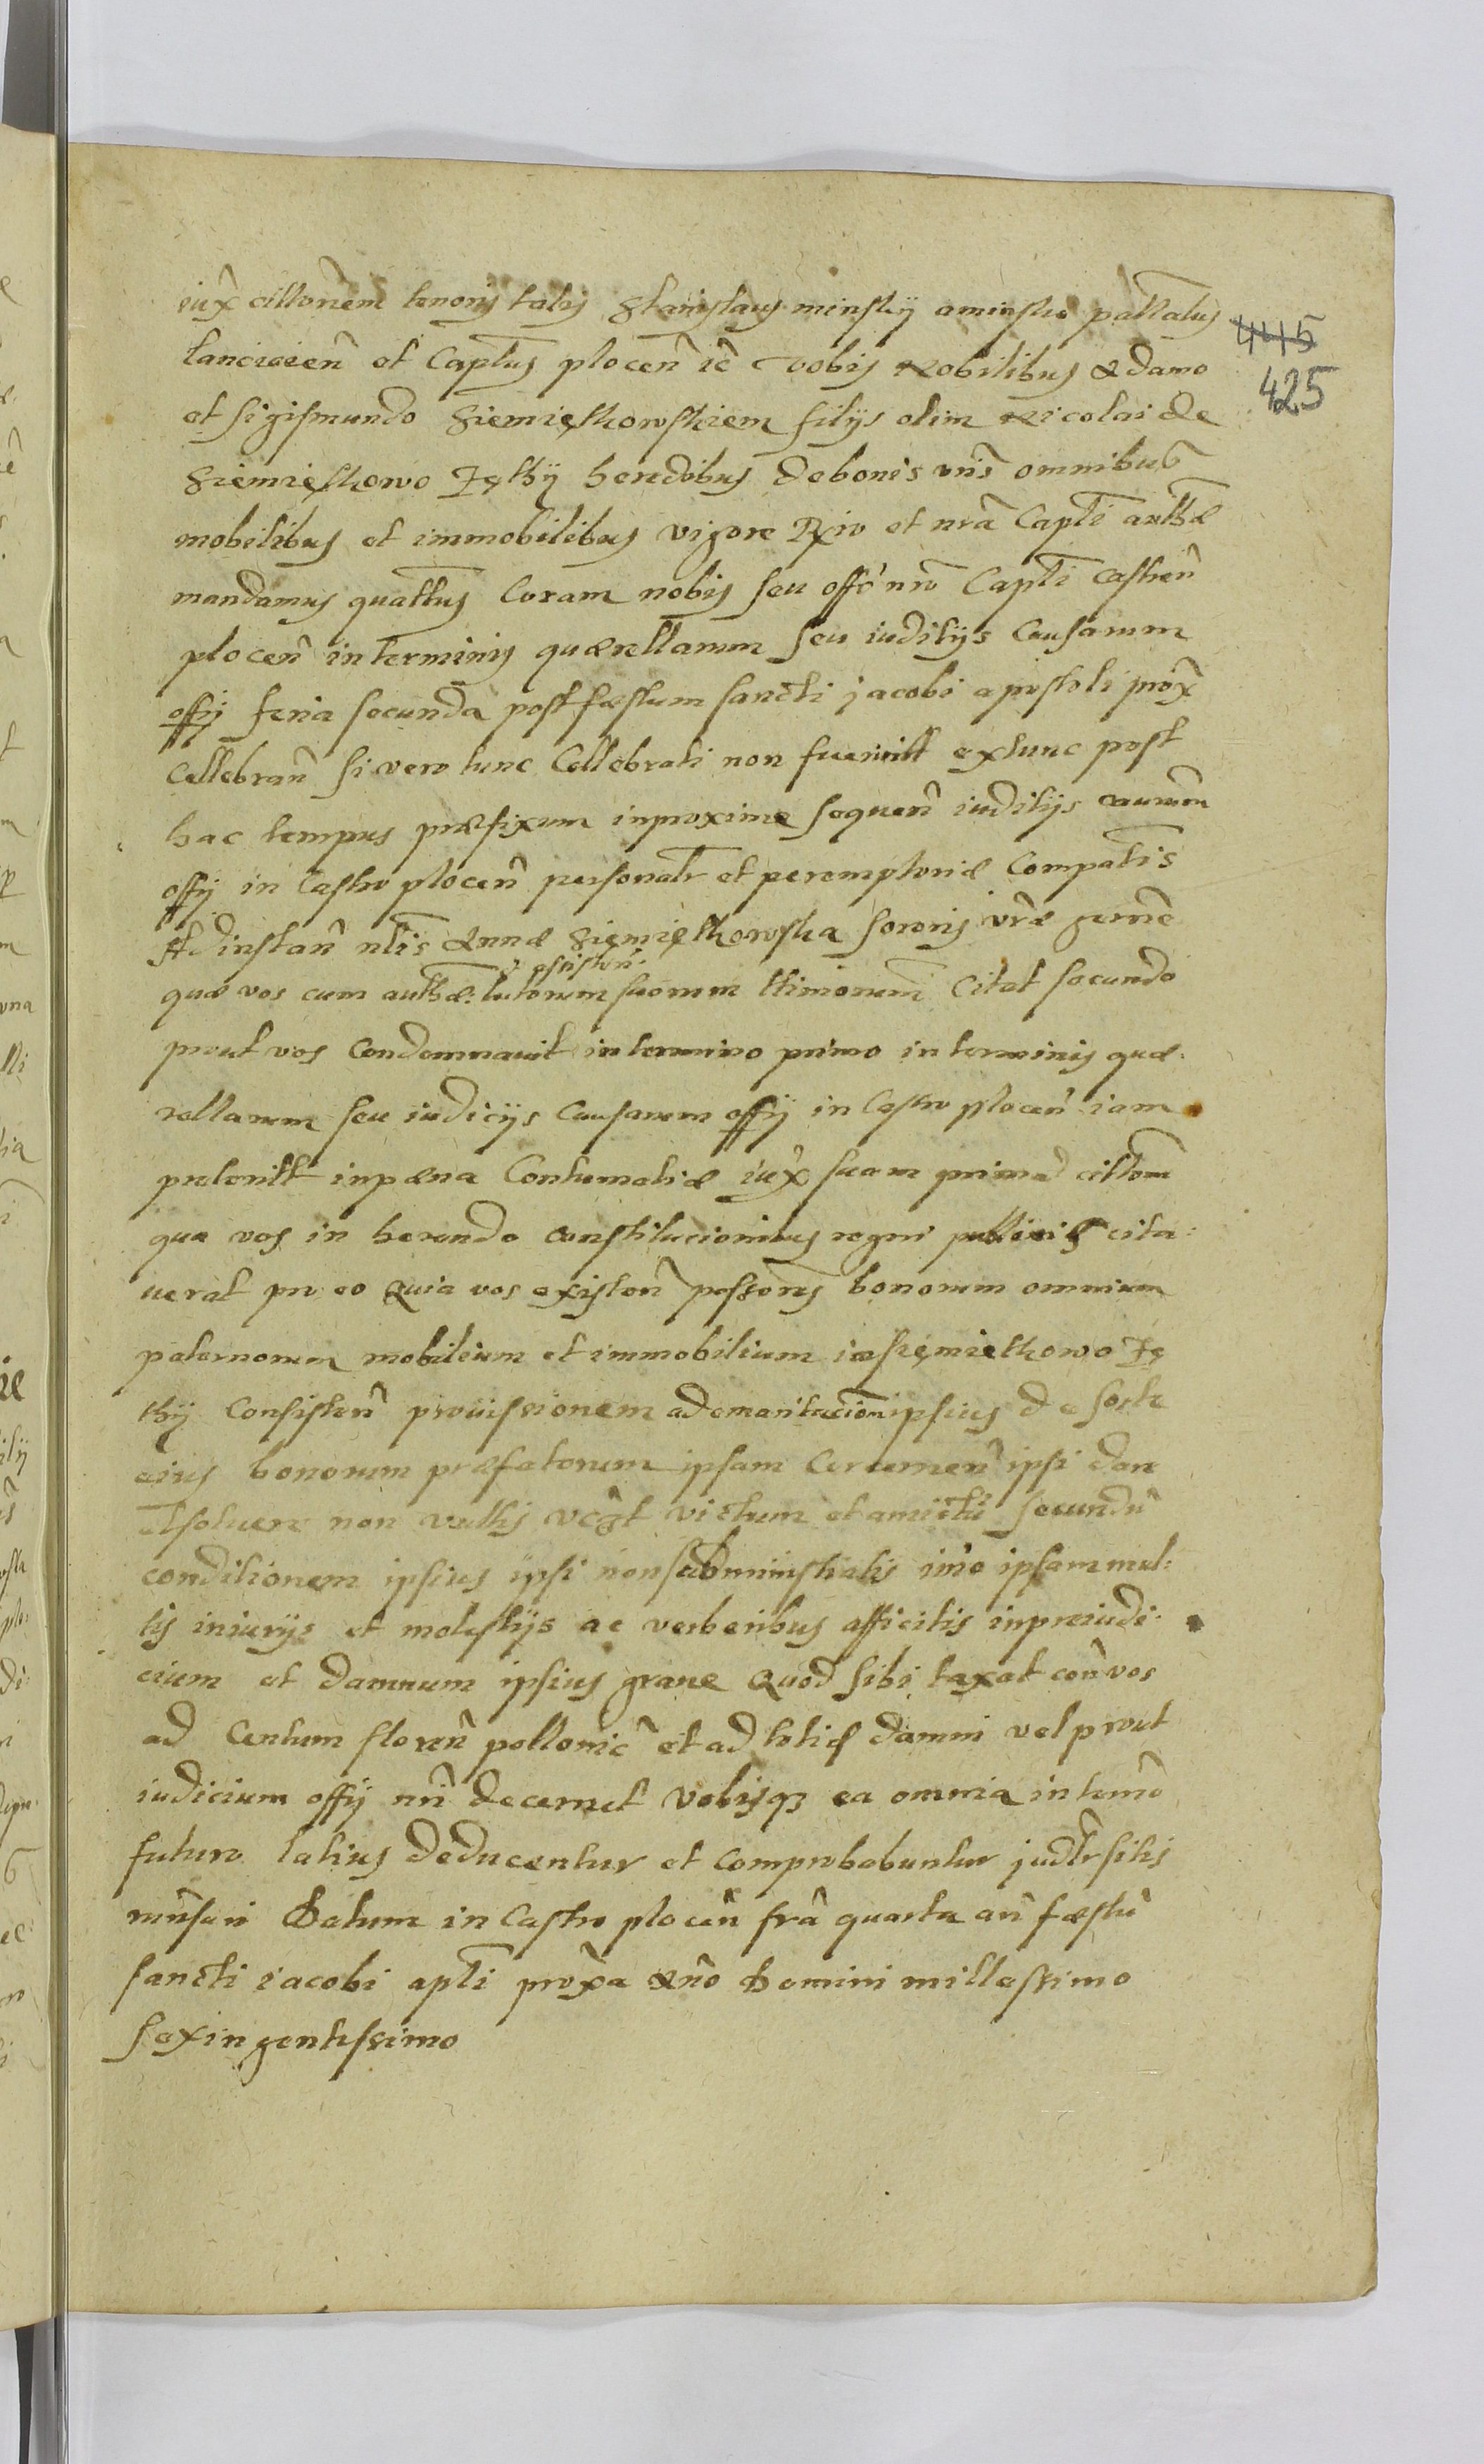 iux̃ cittonẽm tenoris talis Stanislaus minskÿ aminsko pallatus
lanciciеñ et Captus̃ ploceñ ic̃ vobis Nobilibus Adamo
et sigismundo Siemięthowskiem filijs olim Nicolai de
Siemięthowo Ięthÿ heredibus de bonis vris̃ omnibus
mobilibus et immobilibus vigore Rxio et nrã Capti auth̃æ
mandamus quattus̃ Coram nobis seu offo nrõ Capti castreñ
ploceñ in terminis quærellarum seu iuditijs Causarum
offij feria secunda post fæstum sancti jacobi apostoli prox̃
Cellebrañ si vero tunc Cellebrati non fuerintt extunc post
hac tempus præfixum in proxime sequeñ iuditijs caurum̃
offij in Castro ploceñ personatr̃ et peremptoriæ Compatis̃
Ad instañ nlis̃ Annæ Siemięthowska sororis vræ germẽ
et assisteñ:
quæ vos cum auth̃æ: tutorum suorum ttimorum̃ Citat secundo
prout vos Condemnauit in termino primo in terminis quæ:
rellarum seu iudicijs Causarum offij in Castro ploceñ iam
preteritt in pæna Contumatiæ iux̃ suam prima cittom̃
qua vos in herendo constitucionibus regni publicis cita:
uerat pro eo Quia vos existeñ possoris̃ bonorum omnium
paternorum mobilium et immobilium in Siemiethowo Ię
thÿ Consisteñ prouissionem ad emaritacion̄ ipsius de sorte
eius bonorum præfatorum ipsam Cerneñ ipsi dare
et soluere non vultis vczt victum et amictũ secundũ
conditionem ipsius ipsi non subministratis imo ipsam mul:
tis iniurijs et molestijs ac verberibus afficitis in preiudi:
cium et damnum ipsius graue Quod sibi taxat coñ vos
ad Centum floreñ pollonic̃ et ad totid damni vel prout
iudicium offij nri̇̃ decernet Vobisqʒ ea omnia in termõ
futuro latius deducentur et comprobabuntur judtr̃ sitis
rurñsuri Datum in Castro ploceñ frã quarta añ fæstũ
sancti iacobi aptli prox̃a Año Domini millessimo
sexingentessimo
4415
425